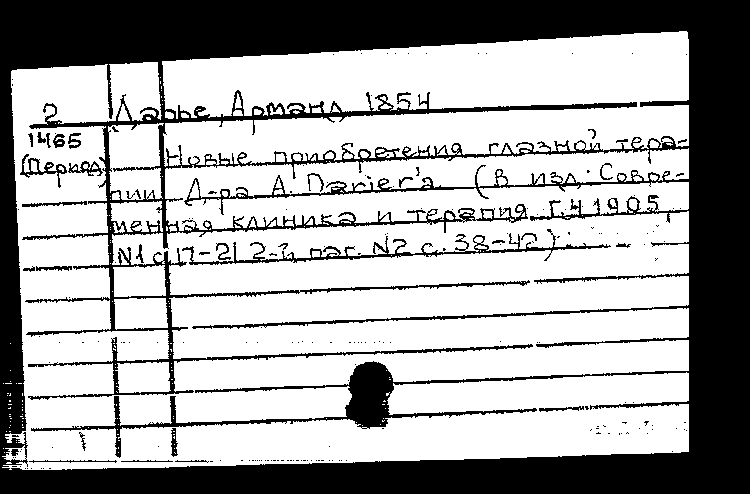 2 Дарье, Арманд 1854
1465
(Период) Новые приобретения глазной тера-
пии Д-ра А. Darier'a (В изд: Совре-
менная клиника и терапия. Г.4 1905,
N1 с 17-21 2-й паг. N2 с. 38-42)